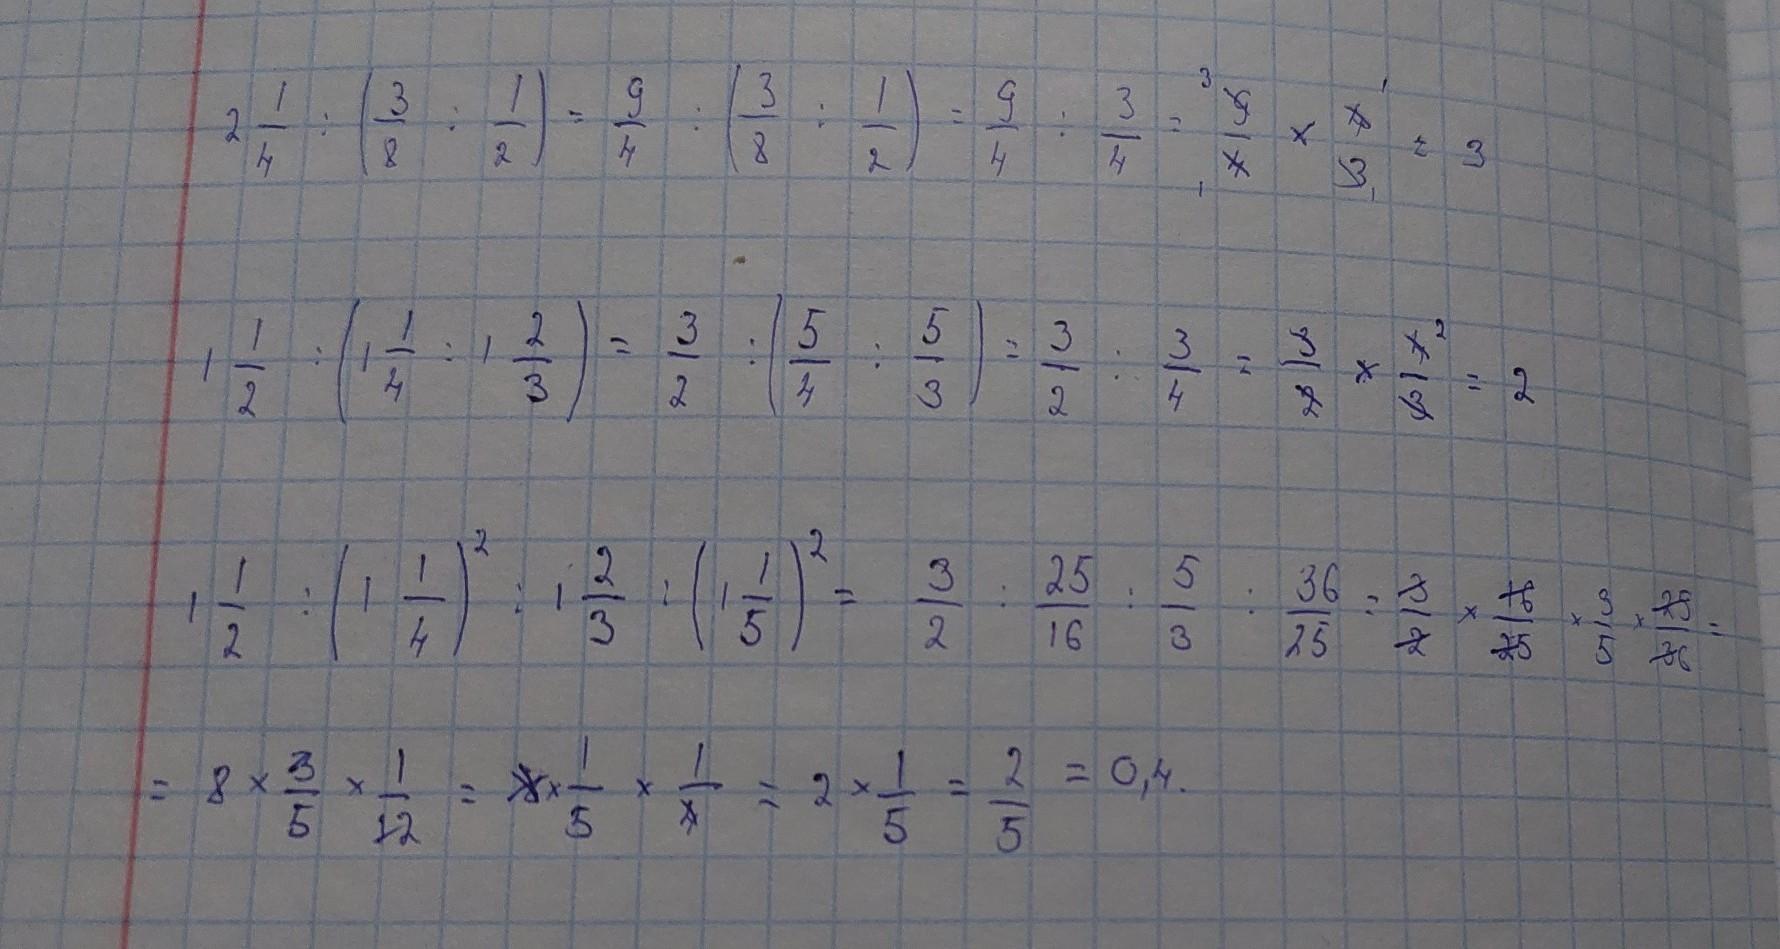 2 1/4 : (3/8 : 1/2) = 9/4 : (3/8 : 1/2) = 9/4 : 3/4 = 9/4 × 4/3 = 3
1 1/2 : (1 1/4 : 1 2/3) = 3/2 : (5/4 : 5/3) = 3/2 : 3/4 = 3/2 × 4/3 = 2
1 1/2 : (1 1/4)² : 1 2/3 : (1 1/5)² = 3/2 : 25/16 : 5/3 : 36/25 = 3/2 × 16/25 × 3/5 × 25/36 =
= 8 × 3/5 × 1/12 = 8 × 1/5 × 1/4 = 2 × 1/5 = 2/5 = 0,4.